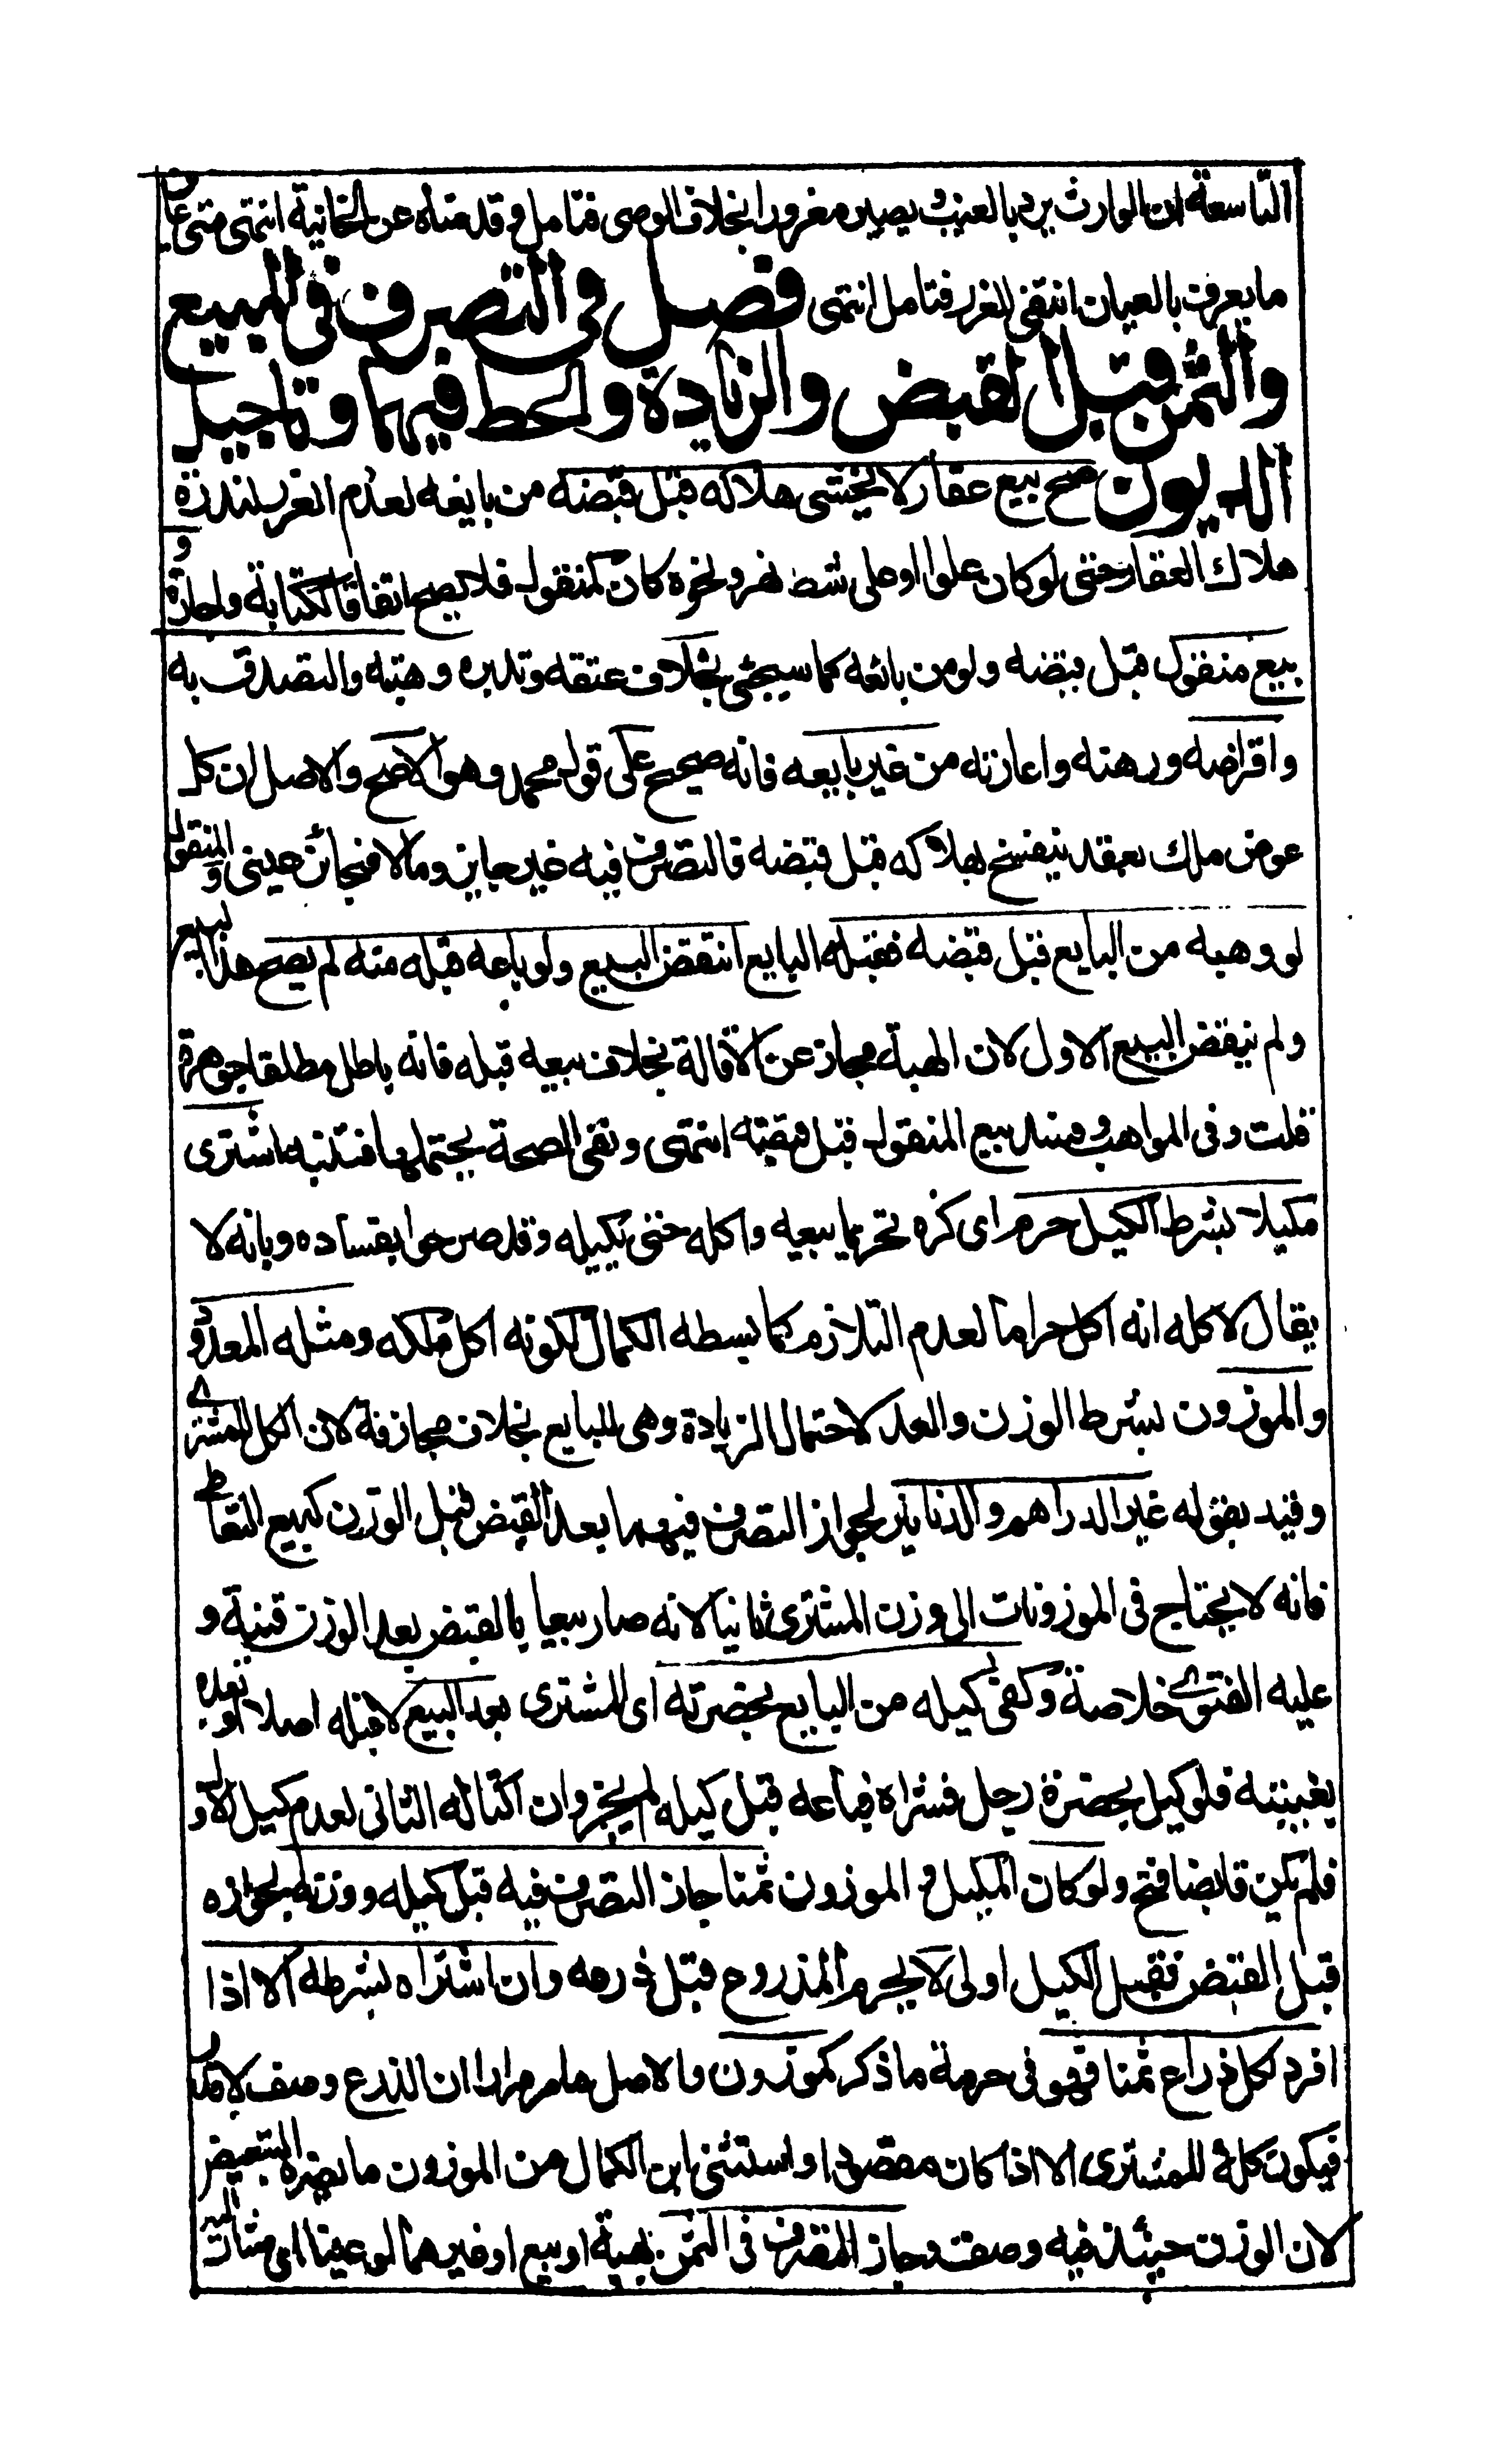 التاسعة ان الوارث يرد بالعيب ويصير مغرورا بخلاف الوصى فتامل وقدمناه عن الخانية انتهى متى عاين
ما يعرف بالعيان انتفى الغرر فتامل انتهى فصل فى التصرف فى المبيع
والثمن قبل القبض والزيادة والحط فيهما وتاجيل
الديون صح بيع عقار لا يخشى هلاكه قبل قبضه من بايعه لعدم الغرر لندرة
هلاك العقار حتى لو كان علوا او على شط نهر ونحوه كان كمنقول فلا يصح اتفاقا ككتابة واجارة و
بيع منقول قبل قبضه ولو من بائعه كما سيجئ بخلاف عتقه وتدبره وهبته والتصدق به
واقراضه ورهنه واعارته من غير بايعه فانه صحيح على قول محمد وهو الاصح والاصل ان كل
عوض ملك بعقد ينفسخ بهلاكه قبل قبضه فالتصرف فيه غير جايز ومالا فجائز عينى والمنقول
لو وهبه من البايع قبل قبضه فقبله البايع انتقض البيع ولو باعه قبله منه لم يصح هذا البيع
ولم ينقض البيع الاول لان الهبة مجاز عن الاقالة بخلاف بيعه قبله فانه باطل مطلقا جوهرة
قلت وفى المواهب وفسد بيع المنقول قبل قبضه انتهى ونفى الصحة يحتملهما فتنبه اشترى
مكيلا بشرط الكيل حرم اى كره تحريما بيعه واكله حتى يكيله وقد صرحوا بفساده وبانه لا
يقال لاكله انه اكل حراما لعدم التلازم كما بسطه الكمال لكونه اكل ملكه ومثله المعدود
والموزون بشرط الوزن والعد لاحتمال الزيادة وهى للبايع بخلاف مجازفة لان الكل للمشترے
وقيد بقوله غير الدراهم والدنانير لجواز التصرف فيهما بعد القبض قبل الوزن كبيع التعاطے
فانه لا يحتاج فى الموزونات الى وزن المشترى ثانيا لانه صار بيعا بالقبض بعد الوزن قنية و
عليه الفتوے خلاصة وكفى كيله من البايع بحضرته اى المشترى بعد البيع لا قبله اصلا او بعده
بغيبته فلو كيل بحضرة رجل فشراه فباعه قبل كيله لم يجز وان اكتاله الثانى لعدم كيل الاول
فلم يكن قابضا فتح ولو كان المكيل او الموزون ثمنا جاز التصرف فيه قبل كيله ووزنه لجوازه
قبل القبض فقبل الكيل اولى لا يحرم المذروع قبل ذرعه وان اشتراه بشرطه الا اذا
افرد لكل ذراع ثمنا فهو فى حرمة ما ذكر كموزون والاصل ما مر مرارا ان الذرع وصف لا قدر
فيكون كله للمشترى الا اذا كان مقصودا واستثنى ابن الكمال من الموزون ما يضره التبعيض
لان الوزن حينئذ فيه وصف وجاز التصرف فى الثمن بهبة او بيع او غيرهما لو عينا اى مشارا اليه